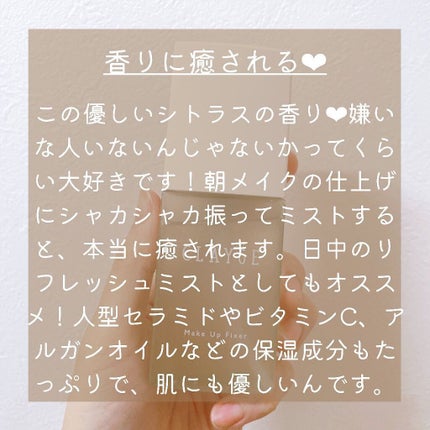 香りに癒される❤
この優しいシトラスの香り❤嫌い
な人いないんじゃないかってくら
い大好きです！朝メイクの仕上げ
にシャカシャカ振ってミストする
と、本当に癒されます。日中のリ
フレッシュミストとしてもオスス
メ！人型セラミドやビタミンC、ア
ルガンオイルなどの保湿成分もた
っぷりで、肌にも優しいんです。
Make Up Fixer